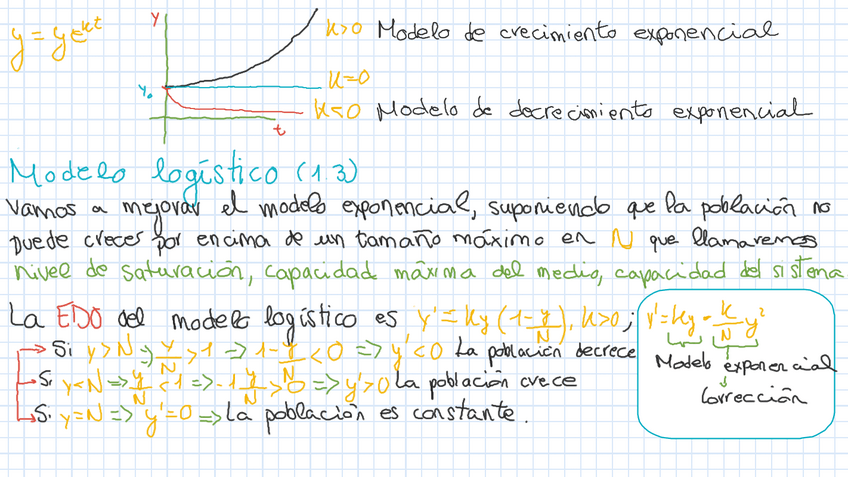 y = y₀e^kt
y
k>0 Modelo de crecimiento exponencial
y₀
k=0
k<0 Modelo de decrecimiento exponencial
t
Modelo logístico (1.3)
Vamos a mejorar el modelo exponencial, suponiendo que la población no
puede creces por encima de un tamaño máximo en N que llamaremos
nivel de saturación, capacidad máxima del medio, capacidad del sistema
La EDO del modelo logístico es y' = ky(1-y/N), k>0; y'=ky - k/N y²
Si y>N => y/N >1 => 1-y/N <0 => y'<0 La población decrece
Modelo exponencial
Si y<N => y/N <1 => -1 y/N >0 => y'>0 La población crece
Corrección
Si y=N => y'=0 => La población es constante.